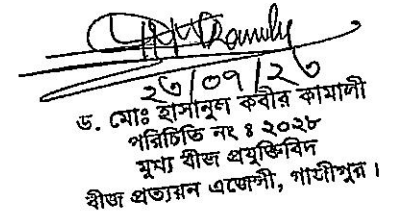 ২৬/০৭/২৬
ড. মোঃ হাসানুল কবীর কামালী
পরিচিতি নং ঃ ২০২৮
মূখ্য বীজ প্রযুক্তিবিদ
বীজ প্রত্যয়ন এজেন্সী, গাযীপুর।